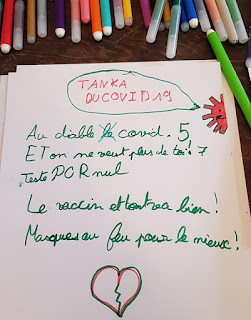 TANKA
DU COVID 19
Au diable le covid. 5
ET on ne veut plus de toi! 7
Teste PCR nul
Le vaccin et tout ira bien!
Masques au feu pour le mieux!